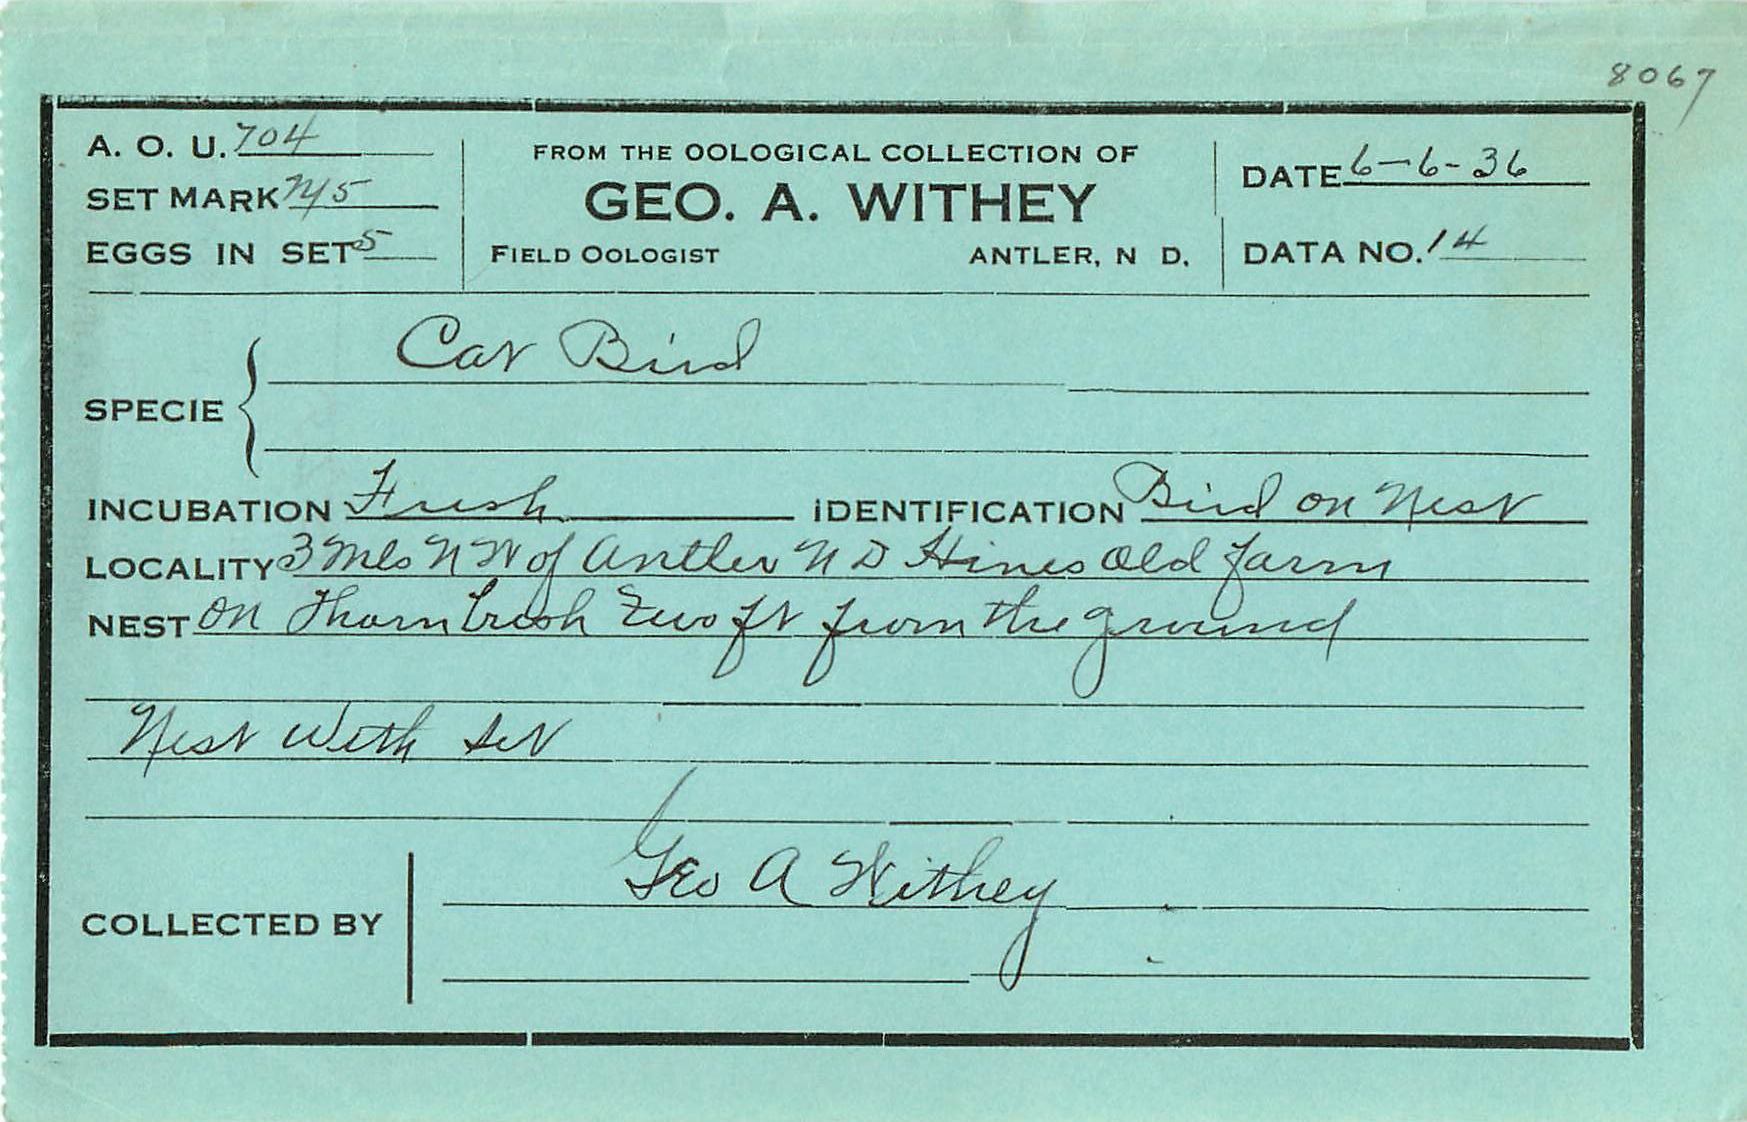 8067
A. O. U. 704
SET MARK N/5
EGGS IN SET 5
FROM THE OOLOGICAL COLLECTION OF
GEO. A. WITHEY
FIELD OOLOGIST ANTLER, N D.
DATE 6-6-36
DATA NO. 14
SPECIE { Cat Bird
INCUBATION Fresh IDENTIFICATION Bird on Nest
LOCALITY 3 Mls N W of Antler N D Hines Old farm
NEST on Thorn brush Two ft from the ground
Nest With Set
COLLECTED BY Geo A Withey